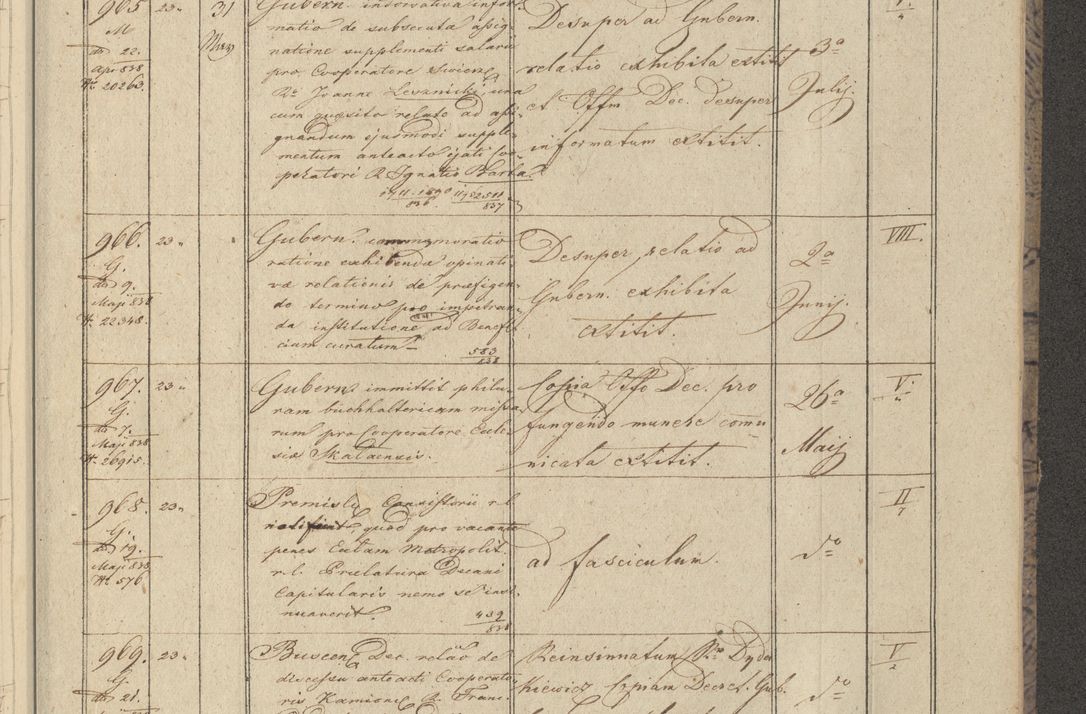 965 23 31 Gubern. intercuativa infor
M
dto 22.
Apr 838
N. 20263.
May
matio de subsecuta assig
natione supplementi salarii
pro Cooperatore
R. Joanne Lesznicki, una
cum quæsito relate ad assi
gnandum ejusmodi supple
mentum anteacto ejati Coo
peratori R. Ignatio Barba.
Desuper ad Gubern.
relatio exhibita extitit
et Offm Dec. desuper
informatum extitit.
3a
Julij.
V.
4
966. 23
G.
dto 9.
Maji 838
N. 22348.
Gubern. commemoratio
ratione exhibenda opinati
væ relationis de præfigen
do termino pro impetran
da institutione ad Benefi
cium curatum.
583
838
Desuper relatio ad
Gubern. exhibita
extitit.
2a
Junij.
VIII.
967. 23
G.
dto 7.
Maji 838
N. 26915.
Gubern. immittit philu
ram buchhaltericam missa
rum pro Cooperatore Eccle
siæ Skalaensis.
Copia Offo Dec. pro
fungendo munere comu
nicata extitit.
26a
Maij
V.
968. 23
G.
dto 19.
Maji 838
N. 576.
Premisl. Consistorii r. l.
notificat, quod pro vacante
penes Ecclam Metropolit.
r. l. Prælatura Decani
Capitularis nemo se insi
nuaverit.
439
838
ad fasciculum.
do
II
7
969. 23
G.
dto 21.
Buscen. Dec. relao de
discessu anteacti Cooperato
ris Kamionc. R. Franc.
Reinsinnatum Rdo Dyda
kiewicz Copiam Decret. Gub.
do
V
2